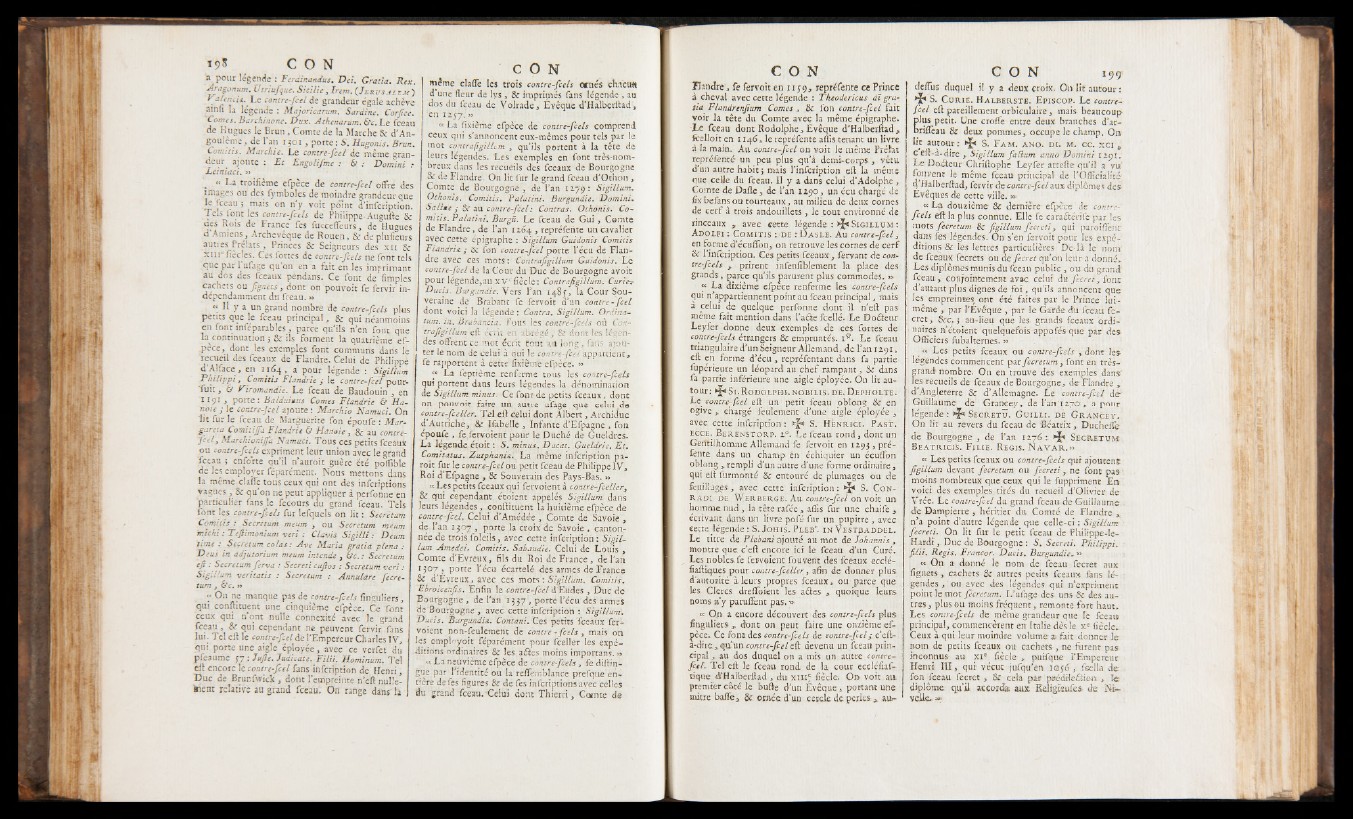 198 CON
a pour légende : Ferdinandus. Dei. Gratia. Rex.
Aragonum. Utriusque. Sicilie, Irem. (JERUSALEM)
Valencia. Le contre-scel de grandeur egale achève
ainsi la légende : Majoricarum. Sardine. Corsice.
Comes. Barchinone. Dux. Athenarum. &c. Le sceau
de Hugues le Brun, Comte de la Marche & d'An-
goulême, de l'an 1301, porte : S. Hugonis. Brun.
Comitis. Marchie. Le contre-scel de même gran-
deur ajoute : Et Engolisme : & : Domini :
Leiniaci. »
« La troisième espèce de contre-scels offre des
images ou des symboles de moindre grandeur que
le sceau ; mais on n'y voit point d'inscription.
Tels sont les contre-scels de Philippe-Auguste &
des Rois de France ses successeurs, de Hugues
d'Amiens, Archevêque de Rouen, & de plusieurs
autres Prélats, Princes & Seigneurs des XII &
XIIIe siècles. Ces sortes de contre-scels ne sont tels
que par l'usage qu'on en a fait en les imprimant
au dos des sceaux pendans. Ce sont de simples
cachets ou signets, dont on pouvoit se servir in-
dépendamment du sceau. »
« Il y a un grand nombre de contre-scels plus
petits que le sceau principal, & qui néanmoins
en sont inséparables, parce qu'ils n'en sont que
la continuation ; & ils forment la quatrième es-
pèce, dont les exemples sont communs dans le
recueil des sceaux de Flandre. Celui de Philippe
d'Alsace, en 1164, a pour légende : Sigillum
Philippi, Comitis Flandrie ; le contre-scel pour-
suit, & Viromandie. Le sceau de Baudouin, en
1191, porte : Balduinus Comes Flandrie & Ha-
noie ; le contre-scel ajoute : Marchio Namuci. On
lit sur le sceau de Marguerite son épouse : Mar-
gareta Comitissa Flandrie & Hanoie, & au contre-
scel, Marchionissa Namuci. Tous ces petits sceaux
ou contre-scels expriment leur union avec le grand
sceau ; ensorte qu'il n'auroit guère été possible
de les employer séparément. Nous mettons dans
la même classe tous ceux qui ont des inscriptions
vagues, & qu'on ne peut appliquer à personne en
particulier sans le secours du sceau. Tels
sont les contre-scels sur lesquels on lit : Secretum
Comitis : Secretum meum, ou Secretum meum
michi : Testimonium veri : Clavis Sigilli : Deum
time : Secretum colas : Ave Maria gratia plena :
Deus in adjutorium meum intende, &c. : Secretum
est : Secretum serva : Secreti custos : Secretum veri :
Sigillum veritatis : Secretum : Annulare secre-
tum, &c. »
« On ne manque pas de contre-scels singuliers,
qui constituent une cinquième espèce. Ce sont
ceux qui n'ont nulle connexité avec le grand
sceau, & qui cependant ne peuvent servir sans
lui. Tel est le contre-scel de l'Empereur Charles IV,
qui porte une aigle éployée, avec ce verset du
pseaume 57 : Juste. Judicate. Filii. Hominum. Tel
est encore le contre-scel sans inscription de Henri,
Duc de Brunswick, dont l'empreinte n'est nulle-
ment relative au grand sceau. On range dans la
CON
même classe les trois contre-scels ornés chacun
d'une fleur de lys, & imprimés sans légende, au
dos du sceau de Volrade, Evêque d'Halberstad,
en 1257. »
« La sixième espèce de contre-scels comprend
ceux qui s'annoncent eux-mêmes pour tels par le
mot contrasigillum, qu'ils portent à la tête de
leurs légendes. Les exemples en sont très-nom-
breux dans les recueils des sceaux de Bourgogne
& de Flandre. On lit sur le grand sceau d'Othon,
Comte de Bourgogne, de l'an 1279 : Sigillum.
Othonis. Comitis. Palatini. Burgundie. Domini.
Salins ; & au contre-scel : Contras. Othonis. Co-
mitis. Palatini. Burgū. Le sceau de Gui, Comte
de Flandre, de l'an 1264, représente un cavalier
avec cette épigraphe : Sigillum Guidonis Comitis
Flandrie ; & son contre-scel porte l'écu de Flan-
dre avec ces mots : Contrasigillum Guidonis. Le
contre-scel de la Cour du Duc de Bourgogne avoit
pour légende, au XVe siècle : Contrasigillum. Curie.
Ducis. Burgundie. Vers l'an 1481, la Cour Sou-
veraine de Brabant se servoit d'un contre-scel
dont voici la légende : Contra. Sigillum. Ordina-
tum. in. Brabantia. Tous les contre-scels où Con-
trasigillum est écrit en abrégé, & dont les légen-
des offrent ce mot écrit tout au long, sans ajou-
ter le nom de celui à qui le contre-scel appartient,
se rapportent à cette sixième espèce. »
« La septième renferme tous les contre-scels
qui portent dans leurs légendes la dénomination
de Sigillum minus. Ce sont de petits sceaux, dont
on pouvoit faire un autre usage que celui de
contre-sceller. Tel est celui dont Albert, Archiduc
d'Autriche, & Isabelle, Infante d'Espagne, son
épouse, se servoient pour le Duché de Gueldres.
La légende étoit : S. minus. Ducat. Gueldrie. Et.
Comitatus. Zutphania. La même inscription pa-
roît sur le contre-scel ou petit sceau de Philippe IV,
Roi d'Espagne, & Souverain des Pays-Bas. »
« Les petits sceaux qui servoient à contre-sceller,
& qui cependant étoient appelés Sigillum dans
leurs légendes, constituent la huitième espèce de
contre-scel. Celui d'Amédée, Comte de Savoie,
de l'an 1307, porte la croix de Savoie, canton-
née de trois soleils, avec cette inscription : Sigil-
lum Amedei. Comitis. Sabaudie. Celui de Louis,
Comte d'Evreux, fils du Roi de France, de l'an
1307, porte l'écu écartelé des armes de France
& d'Evreux, avec ces mots : Sigillum. Comitis.
Ebroicensis. Enfin le contre-scel d'Eudes, Duc de
Bourgogne, de l'an 1337, porte l'écu des armes
de Bourgogne, avec cette inscription : Sigillum.
Ducis. Burgundia. Contani. Ces petits sceaux ser-
voient non-seulement de contre-scels, mais on
les employoit séparément pour sceller les expé-
ditions ordinaires & les actes moins importans. »
« La neuvième espèce de contre-scels, se distin-
gue par l'identité ou la ressemblance presque en-
tière de ses figures & de ses inscriptions avec celles
du grand sceau. Celui dont Thierri, Comte de
CON
Flandre, se servoit en 1159, représente ce Prince
à cheval avec cette légende : Theodericus dī gra-
tia Flandrensium Comes, & son contre-scel fait
voir la tête du Comte avec la même épigraphe.
Le sceau dont Rodolphe, Evêque d'Halberstad,
scelloit en 1146, le représente assis tenant un livre
à la main. Au contre-scel on voit le même Prélat
représenté un peu plus qu'à demi-corps, vêtu
d'un autre habit ; mais l'inscription est la même
que celle du sceau. Il y a dans celui d'Adolphe,
Comte de Dasle, de l'an 1290, un écu chargé de
six besans ou tourteaux, au milieu de deux cornes
de cerf à trois andouillets, le tout environné de
rinceaux, avec cette légende : ✠ SIGILLUM :
ADOLFI : COMITIS : DE : DASLE. Au contre-scel,
en forme d'écusson, on retrouve les cornes de cerf
& l'inscription. Ces petits sceaux, servant de con-
tre-scels, prirent insensiblement la place des
grands, parce qu'ils parurent plus commodes. »
« La dixième espèce renferme les contre-scels
qui n'appartiennent point au sceau principal, mais
à celui de quelque personne dont il n'est pas
même fait mention dans l'acte scellé. Le Docteur
Leyser donne deux exemples de ces sortes de
contre-scels étrangers & empruntés. 1°. Le sceau
triangulaire d'un Seigneur Allemand, de l'an 1291,
est en forme d'écu, représentant dans sa partie
supérieure un léopard au chef rampant, & dans
sa partie inférieure une aigle éployée. On lit au-
tour : ✠ SI. RODOLPHI. NOBILIS. DE. DEPHOLTE.
Le contre-scel est un petit sceau oblong & en
ogive, chargé seulement d'une aigle éployée,
avec cette inscription : ✠ S. HENRICI. PAST.
ECCE. BERENSTORP. 2°. Le sceau rond, dont un
Gentilhomme Allemand se servoit en 1293, pré-
sente dans un champ en échiquier un écusson
oblong, rempli d'un autre d'une forme ordinaire,
qui est surmonté & entouré de plumages ou de
feuillages, avec cette inscription : ✠ S. CON-
RADI DE WERBERGE. Au contre-scel on voit un
homme nud, la tête rasée, assis sur une chaise,
écrivant dans un livre posé sur un pupitre, avec
cette légende : S. JOHIS. PLEB'. IN VESTRADDEL.
Le titre de Plebani ajouté au mot de Johannis,
montre que c'est encore ici le sceau d'un Curé.
Les nobles se servoient souvent des sceaux ecclé-
siastiques pour contre-sceller, afin de donner plus
d'autorité à leurs propres sceaux, ou parce que
les Clercs dressoient les actes, quoique leurs
noms n'y parussent pas. »
« On a encore découvert des contre-scels plus
singuliers, dont on peut faire une onzième es-
pèce. Ce sont des contre-scels de contre-scel ; c'est-
à-dire, qu'un contre-scel est devenu un sceau prin-
cipal, au dos duquel on a mis un autre contre-
scel. Tel est le sceau rond de la cour ecclésias-
tique d'Halberstad, du XIIIe siècle. On voit au
premier côté le buste d'un Evêque, portant une
mitre basse, & ornée d'un cercle de perles, au-
CON 199
dessus duquel il y a deux croix. On lit autour :
✠ S. CURIE. HALBERSTE. EPISCOP. Le contre-
scel est pareillement orbiculaire, mais beaucoup
plus petit. Une crosse entre deux branches d'ar-
brisseau & deux pommes, occupe le champ. On
lit autour : ✠ S. FAM. ANO. DL. M. CC. XCI,
c'est-à-dire, Sigillum factum anno Domini 1291.
Le Docteur Christophe Leyser atteste qu'il a vu
souvent le même sceau principal de l'Officialité
d'Halberstad, servir de contre-scel aux diplômes des
Evêques de cette ville. »
« La douzième & dernière espèce de contre-
scels est la plus connue. Elle se caractérise par les
mots secretum & sigillum secreti, qui paroissent
dans ses légendes. On s'en servoit pour les expé-
ditions & les lettres particulières. De là le nom
de sceaux secrets ou de secret qu'on leur a donné.
Les diplômes munis du sceau public, ou du grand
sceau, conjointement avec celui du secret, sont
d'autant plus dignes de foi, qu'ils annoncent que
les empreintes ont été faites par le Prince lui-
même, par l'Evêque, par le Garde du sceau se-
cret, &c. ; au-lieu que les grands sceaux ordi-
naires n'étoient quelquefois apposés que par des
Officiers subalternes. »
« Les petits sceaux ou contre-scels, dont les
légendes commencent par secretum, sont en très-
grand nombre. On en trouve des exemples dans
les recueils de sceaux de Bourgogne, de Flandre,
d'Angleterre & d'Allemagne. Le contre-scel de
Guillaume de Grancey, de l'an 1270, a pour
légende : ✠ SECRETŪ. GUILLI. DE GRANCEY.
On lit au revers du sceau de Béatrix, Duchesse
de Bourgogne, de l'an 1276 : ✠ SECRETUM
BEATRICIS. FILIE. REGIS. NAVAR. »
« Les petits sceaux ou contre-scels qui ajoutent
sigillum devant secretum ou secreti, ne sont pas
moins nombreux que ceux qui le suppriment. En
voici des exemples tirés du recueil d'Olivier de
Vrée. Le contre-scel du grand sceau de Guillaume
de Dampierre, héritier du Comté de Flandre,
n'a point d'autre légende que celle-ci : Sigillum
secreti. On lit sur le petit sceau de Philippe-le-
Hardi, Duc de Bourgogne : S. Secreti. Philippi.
filii. Regis. Francor. Ducis. Burgundie. »
« On a donné le nom de sceau secret aux
signets, cachets & autres petits sceaux sans lé-
gendes, ou avec des légendes qui n'expriment
point le mot secretum. L'usage des uns & des au-
tres, plus ou moins fréquent, remonte fort haut.
Les contre-scels de même grandeur que le sceau
principal, commencèrent en Italie dès le Xe siècle.
Ceux à qui leur moindre volume a fait donner le
nom de petits sceaux ou cachets, ne furent pas
inconnus au XIe siècle, puisque l'Empereur
Henri III, qui vécut jusqu'en 1056, scella de
son sceau secret, & cela par prédilection, le
diplôme qu'il accorda aux Religieuses de Ni-
velle. »